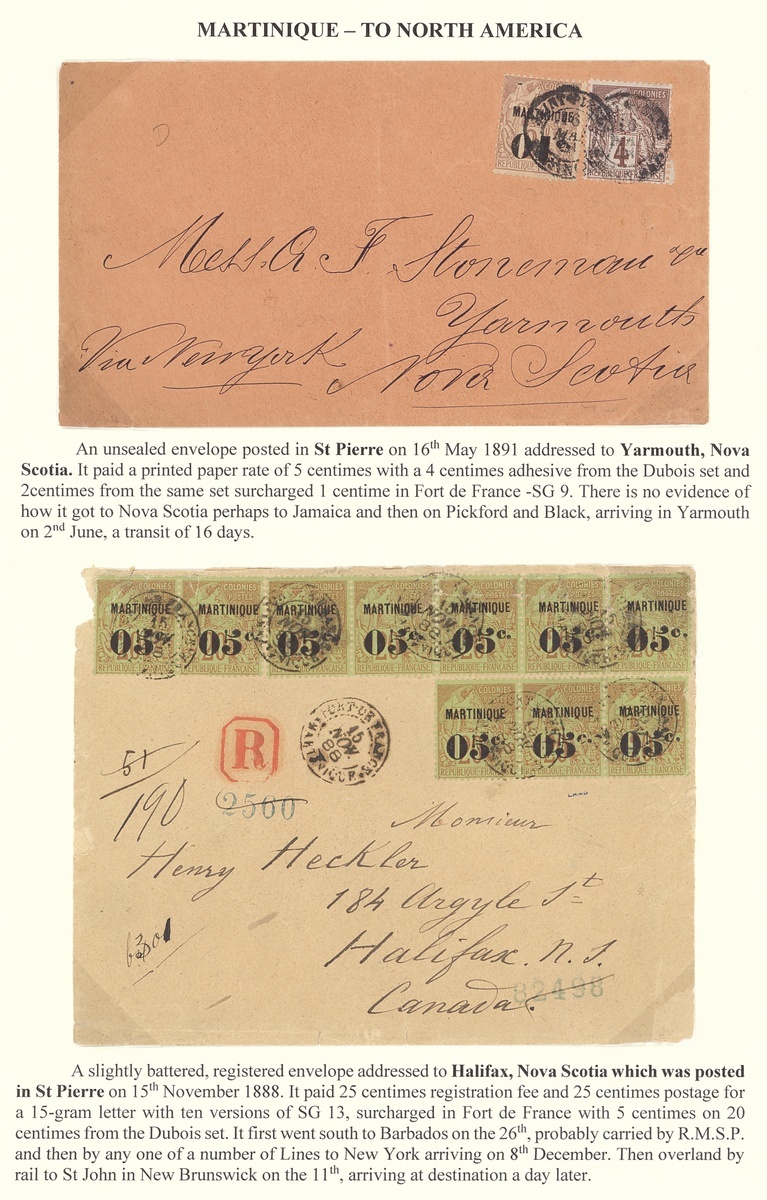 MARTINIQUE – TO NORTH AMERICA
COLONIES
MARTINIQUE
01
4
REPUBLIQUE FRANÇAISE
Mess. A. F. Stoneman
Yarmouth
Via New York
Nova Scotia
An unsealed envelope posted in St Pierre on 16th May 1891 addressed to Yarmouth, Nova
Scotia. It paid a printed paper rate of 5 centimes with a 4 centimes adhesive from the Dubois set and
2centimes from the same set surcharged 1 centime in Fort de France -SG 9. There is no evidence of
how it got to Nova Scotia perhaps to Jamaica and then on Pickford and Black, arriving in Yarmouth
on 2nd June, a transit of 16 days.
COLONIES COLONIES COLONIES COLONIES COLONIES COLONIES
MARTINIQUE MARTINIQUE MARTINIQUE MARTINIQUE MARTINIQUE MARTINIQUE MARTINIQUE
05c. 05c. 05c. 05c. 05c. 05c. 05c.
REPUBLIQUE FRANÇAISE
COLONIES COLONIES COLONIES
MARTINIQUE MARTINIQUE MARTINIQUE
05c. 05c. 05c.
REPUBLIQUE FRANÇAISE
R
FORT-DE-FRANCE
15
NOV.
88
MARTINIQUE
51
190
2560
Monsieur
Henry Heckler
184 Argyle St
Halifax. N. S.
Canada.
82498
A slightly battered, registered envelope addressed to Halifax, Nova Scotia which was posted
in St Pierre on 15th November 1888. It paid 25 centimes registration fee and 25 centimes postage for
a 15-gram letter with ten versions of SG 13, surcharged in Fort de France with 5 centimes on 20
centimes from the Dubois set. It first went south to Barbados on the 26th, probably carried by R.M.S.P.
and then by any one of a number of Lines to New York arriving on 8th December. Then overland by
rail to St John in New Brunswick on the 11th, arriving at destination a day later.